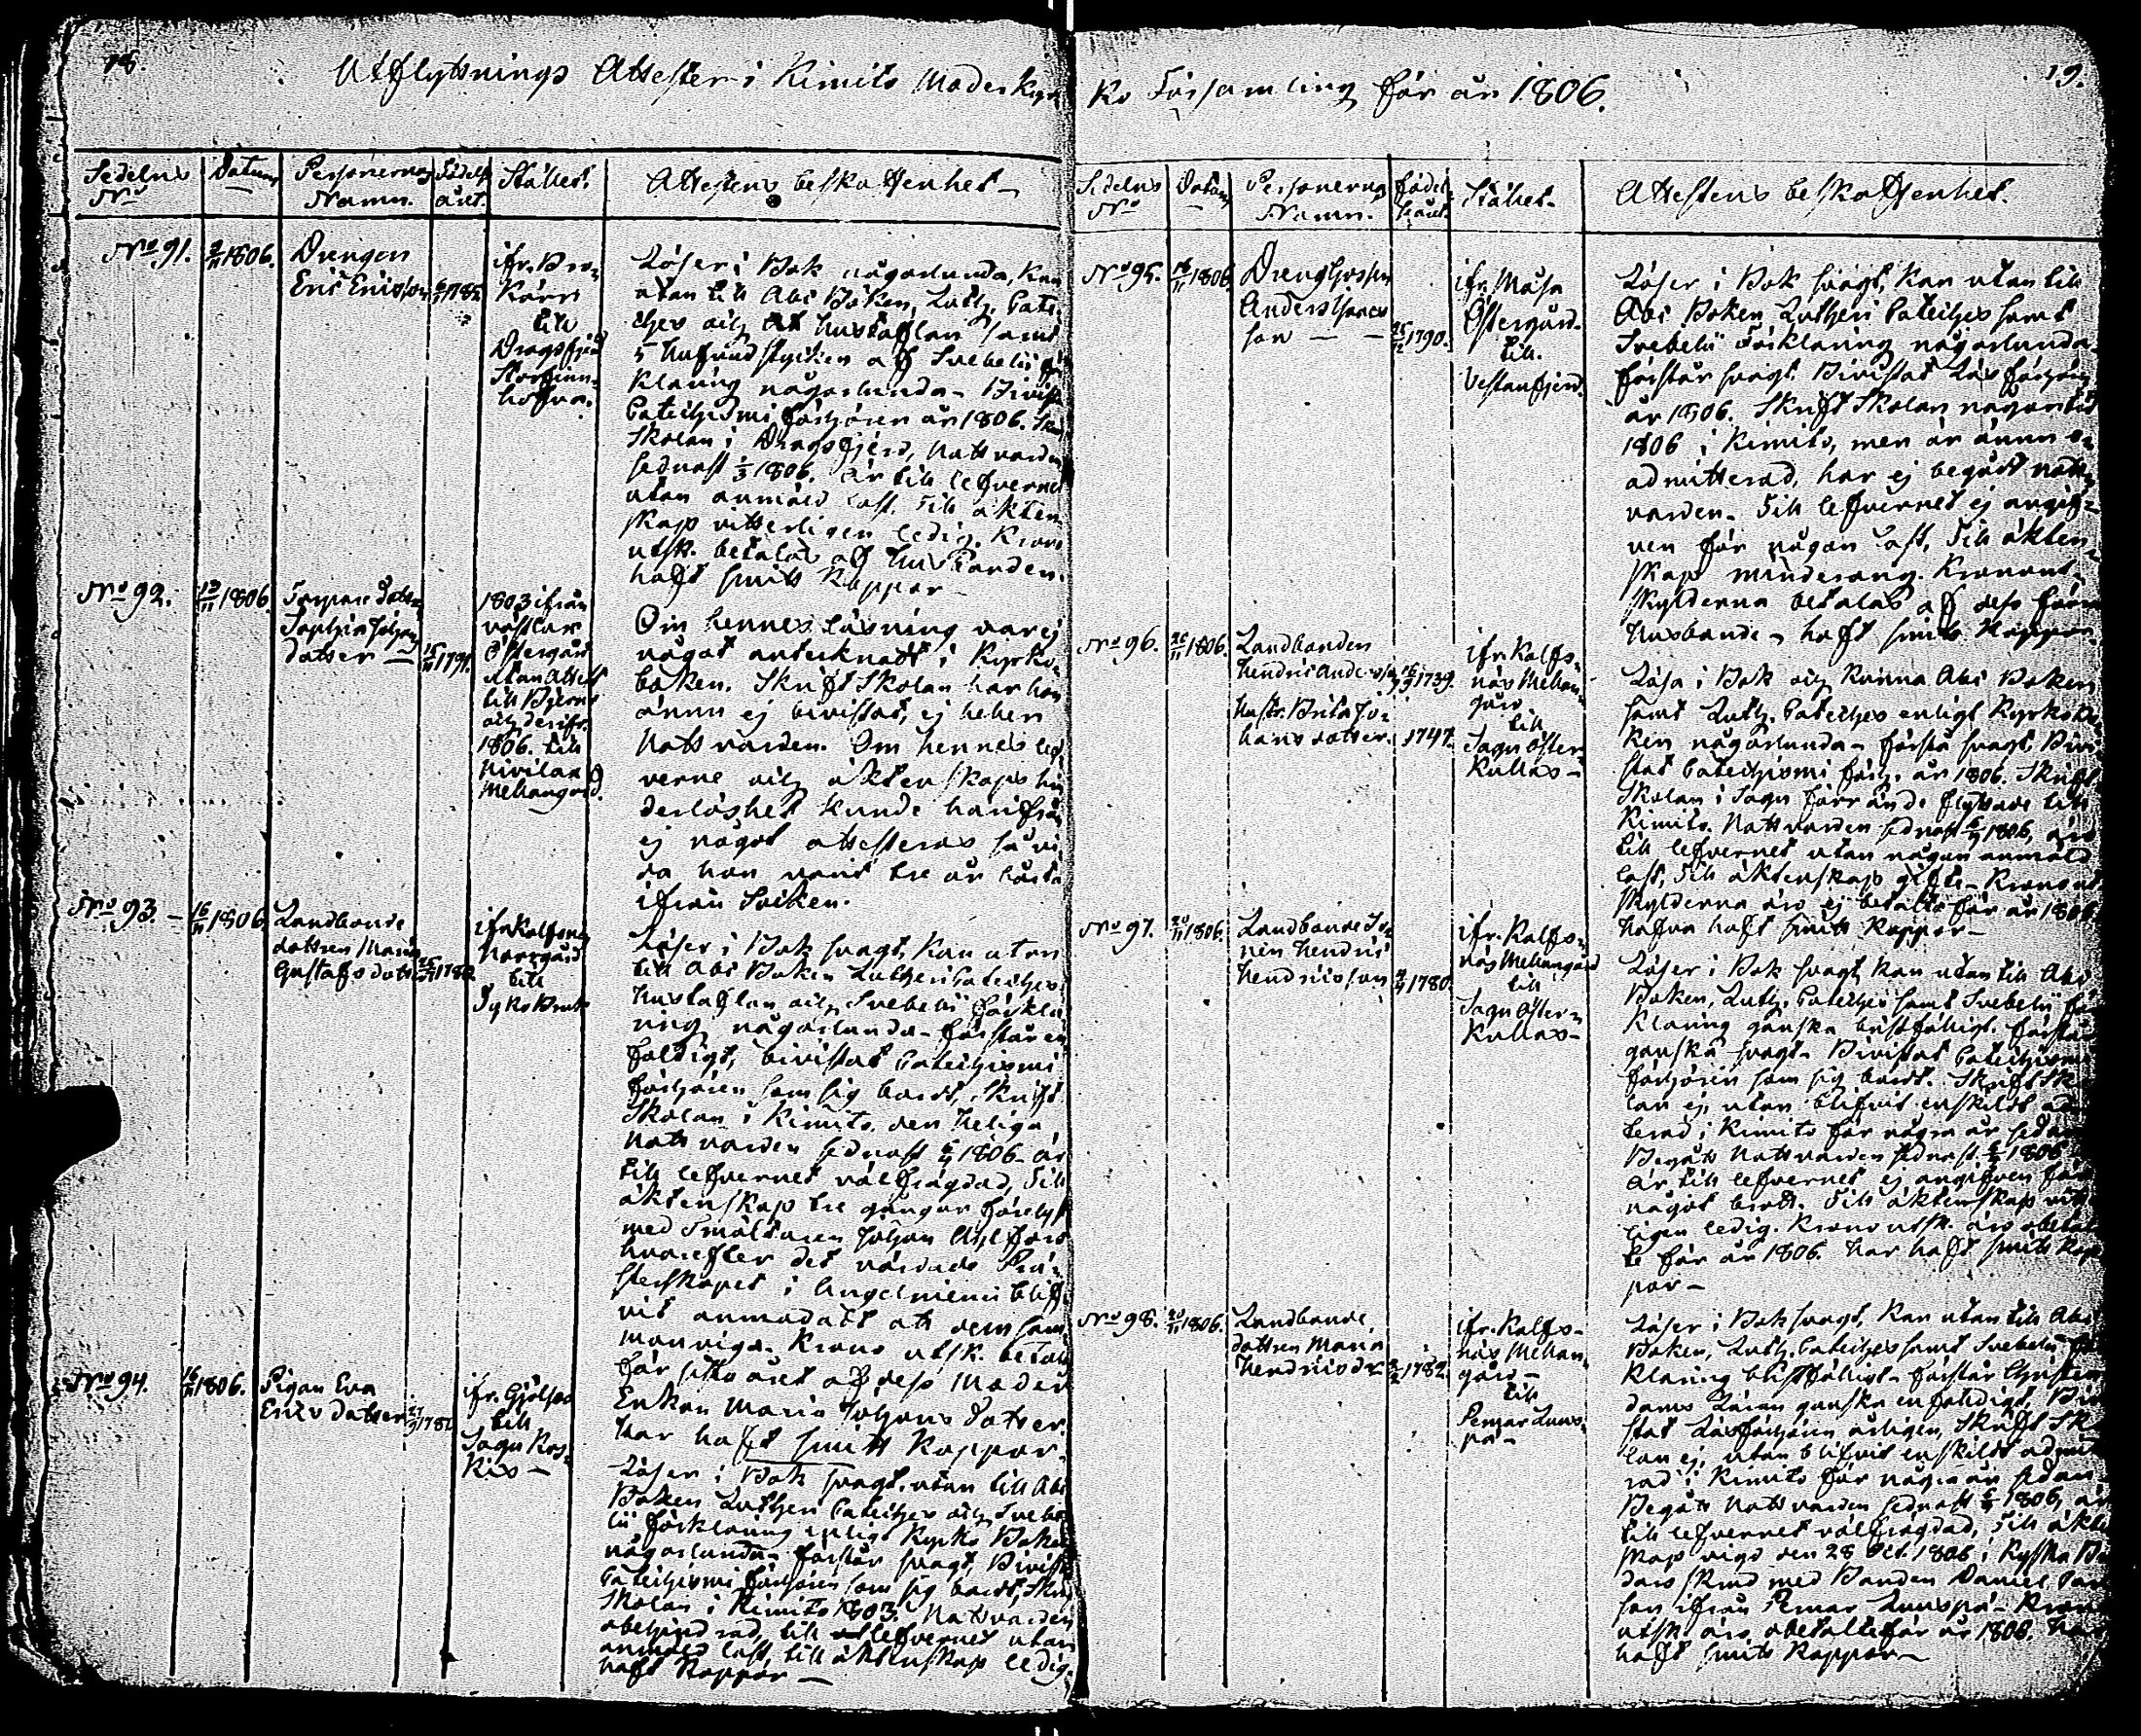 18.
Utflyttnings Attester i Kimito Moderkyr
Sedelns No
Datum
Personernas Namn.
Födelse året.
Stället.
Attestens beskaffenhet
No 91.
1806.
Drengen
Eric Ericsson
ifr.
Kärr
till
Dragsfjerd
Läser i Bok någorlunda, kan
utan till Abc Boken, Luth. Cate
ches och Hustaflan samt
5 hufvudstycken af Svebelii för
klaring någorlunda - Bivist
Catechismi förhören år 1806. Skrift
Skolan i Dragsfjerd, Nattvarden
sednast 1806. är till lefvernet
utan anmäld last. Till äkten-
skap vitterligen ledig. Krono
utsk. betalas af Husbonden.
haft smitt Koppor -
No 92.
1806.
Sophia Johans
dotter -
1791.
1803 ifrån
Östergård
utan Attest
till
och derifr.
1806. till
Mellangård.
Om hennes läsning var ej
något antecknadt i Kyrko-
boken. Skrift Skolan har hon
ännu ej bivistat, ej heller
Nattvarden. Om hennes lef
verne och äktenskaps hin
derlöshet kunde härifrån
ej något attesteras så vi
da hon varit tre år borta
ifrån Socken.
No 93. -
16/11 1806
Landbonde
dottren Maria
Gustafs dotter
ifr Kalfsnäs
Norrgård
till
Tyko Bruk
Läser i Bok svagt, kan utan
till Abc Boken Lutheri Cateches
Hustaflan och Svebelii förkla
ring någorlunda - förstår en
faldigt, bivistat Catechismi
förhören som sig bordt, Skrift
Skolan i Kimito, den heliga
Nattvarden sednast 1806 - är
till lefvernet välfrägdad, Till
äktenskap tre gångor förelyst
med Smältaren Johan Ahlfors
hvarefter det vördade Prä-
sterskapet i Angelniemi blif
vit anmodadt att dem sam
manviga. Krono utsk. betalt
för sitta året af dess Moder
Enkan Maria Johans dotter.
har haft smitt Koppor.
No 94.
1806.
Pigan Eva
Erics dotter
ifr. Gjölsbö
till
Sagu Kos-
kis -
Läser i Bok svagt, utan till Abc
Boken Lutheri Cateches och Svebe
lii förklaring enligt Kyrko Boken
någorlunda - förstår svagt, Bivist
Catechismi förhören som sig bordt, Skrift
Skolan i Kimito 1803. Nattvarden
obehindrad, till lefvernet utan
anmäld last, till äktenskap ledig.
haft Koppor -
19.
ko Församling för år 1806.
Sedelns No
Datum
Personernas Namn.
födelse året.
Stället.
Attestens beskaffenhet.
No 95.
1806.
Drenggossen
Anders
son - -
1790.
ifr. Måsa
Östergård.
till.
Vestanfjerd.
Läser i Bok svagt, kan utan till
Abc Boken Lutheri Cateches samt
Svebelii Förklaring någorlunda.
förstår svagt. Bivistat Läs förhören
år 1806. Skrift Skolan någon tid
1806 i Kimito, men är ännu o-
admitterad, har ej begådt natt-
varden. Till lefvernet ej angif-
ven för någon last, Till äkten-
skap minderårig. Kronout-
skylderna betalas af dess förra
husbonde - haft smitt Koppor.
No 96.
20/11 1806.
Landbonden
Hendric Andersson
1739.
hustr. Brita Jo-
hans dotter
1747.
ifr Kalfs-
näs Mellan
gård
till
Sagu Öster
Kullas -
Läsa i Bok och kunna Abc Boken
samt Luth. Cateches enligt Kyrkobo
ken någorlunda - förstå svagt Bivi
stat Catechismi förh. år 1806. Skrift
Skolan i Sagu förr än de flyttade till
Kimito. Nattvarden sednast 1806, äro
till lefvernet utan någon anmäld
last, Till äktenskap gifta - Kronout
skylderna äro ej betalte för år 1806
hafva haft smitt Koppor -
No 97.
20/11 1806.
Landbonde So-
nen Hendric
Hendricsson
1780.
ifr. Kalfs-
näs Mellangård
till
Sagu Öster-
Kullas -
Läser i Bok svagt, kan utan till Abc
Boken, Luth. Cateches samt Svebelii för
klaring ganska bristfälligt. förstår
ganska svagt - Bivistat Catechismi
förhören som sig bordt. Skrift Sko
lan ej, utan blifvit enskildt admit
terad i Kimito för några år sedan
Begått Nattvarden sednast 1806
är till lefvernet ej angifven för
något brott. Till äktenskap vitter
ligen ledig. Krono utsk. äro obetal
te för år 1806. har haft smitt Kop
por -
No 98.
20/11 1806.
Landbonde
dottren Maria
Hendricsdr
1782.
ifr. Kalfs-
näs Mellan
gård -
till
Pemar Luus-
pä -
Läser i Bok svagt, kan utan till Abc
Boken, Luth. Cateches samt Svebelii för
klaring bristfälligt - förstår Christen
doms Läran ganska enfaldigt, Bivi
stat Läsförhören årligen, Skrift Sko
lan ej, utan blifvit enskildt admitte
rad i Kimito för några år sedan
Begått Nattvarden sednast 1806, är
till lefvernet välfrägdad, Till äkten
skap vigd den 28 Oct. 1806 i
med Bonden Daniel
son ifrån Pemar Luuspä - Krono
utsk. äro obetalte för år 1806. har
haft smitt Koppor -